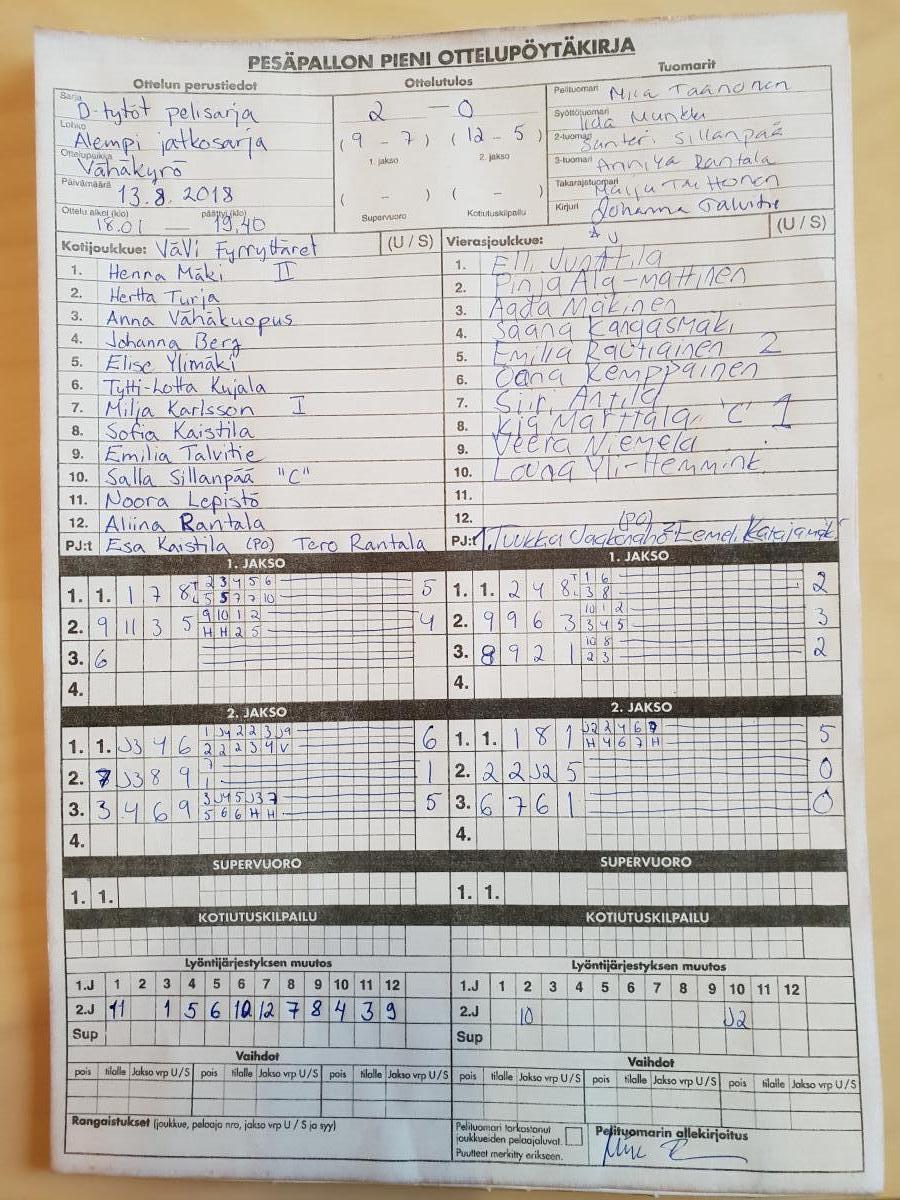 PESÄPALLON PIENI OTTELUPÖYTÄKIRJA
Ottelun perustiedot
Sarja D-tytöt pelisarja
Lohko Alempi jatkosarja
Ottelupaikka Vähäkyrö
Päivämäärä 13.8.2018
Ottelu alkoi (klo) 18.01 päättyi (klo) 19.40
Ottelutulos
2 – 0
(9 – 7) (12 – 5)
1. jakso 2. jakso
( – ) ( – )
Supervuoro Kotiutuskilpailu
Tuomarit
Pelituomari Miia Taanonen
Syöttötuomari Iida Munkki
2-tuomari Santeri Sillanpää
3-tuomari Anniya Rantala
Takarajatuomari Maiju
Kirjuri Johanna Talvitie
Kotijoukkue: VäVi Fyrryttäret (U / S)
1. Henna Mäki II
2. Hertta Turja
3. Anna Vähäkuopus
4. Johanna Berg
5. Elise Ylimäki
6. Tytti-Lotta Kujala
7. Milja Karlsson I
8. Sofia Kaistila
9. Emilia Talvitie
10. Salla Sillanpää "C"
11. Noora Lepistö
12. Aliina Rantala
PJ:t Esa Kaistila (PO) Tero Rantala
Vierasjoukkue: AJ (U / S)
1. Elli Junttila
2. Pinja Ala-mattinen
3. Aada Mäkinen
4. Saana Kangasmäki
5. Emilia Rautiainen 2
6. Oona Kemppainen
7. Siiri Antila
8. Kia Marttala "C" 1
9. Veera Niemelä
10. Louna Yli-Hemmink
11.
12.
PJ:t 1. Tuukka (PO) 2. Eemeli Katajamäki
1. JAKSO
1. 1. 1 7 8 T 2 3 4 5 6 5
L 5 5 7 7 10
2. 9 11 3 5 9 10 1 2 4
H H 2 5
3. 6
4.
1. JAKSO
1. 1. 2 4 8 T 1 6 2
L 3 8
2. 9 9 6 3 10 1 2 3
3 4 5
3. 8 9 2 1 10 8 2
2 3
4.
2. JAKSO
1. 1. J3 4 6 1 J4 2 2 3 J9 6
2 2 2 3 4 V
2. 7 J3 8 9 7 1
1
3. 3 4 6 9 3 J4 5 J3 7 5
5 6 6 H H
4.
2. JAKSO
1. 1. 1 8 1 J2 2 4 6 7 5
H 4 6 7 H
2. 2 2 J2 5 0
3. 6 7 6 1 0
4.
SUPERVUORO
1. 1.
SUPERVUORO
1. 1.
KOTIUTUSKILPAILU
KOTIUTUSKILPAILU
Lyöntijärjestyksen muutos
1.J 1 2 3 4 5 6 7 8 9 10 11 12
2.J 11 1 5 6 10 12 7 8 4 3 9
Sup
Lyöntijärjestyksen muutos
1.J 1 2 3 4 5 6 7 8 9 10 11 12
2.J 10 J2
Sup
Vaihdot
pois tilalle Jakso vrp U / S pois tilalle Jakso vrp U / S pois tilalle Jakso vrp U / S
Vaihdot
pois tilalle Jakso vrp U / S pois tilalle Jakso vrp U / S pois tilalle Jakso vrp U / S
Rangaistukset (joukkue, pelaaja nro, jakso vrp U / S ja syy)
Pelituomari tarkastanut
joukkueiden pelaajaluvat.
Puutteet merkitty erikseen.
Pelituomarin allekirjoitus